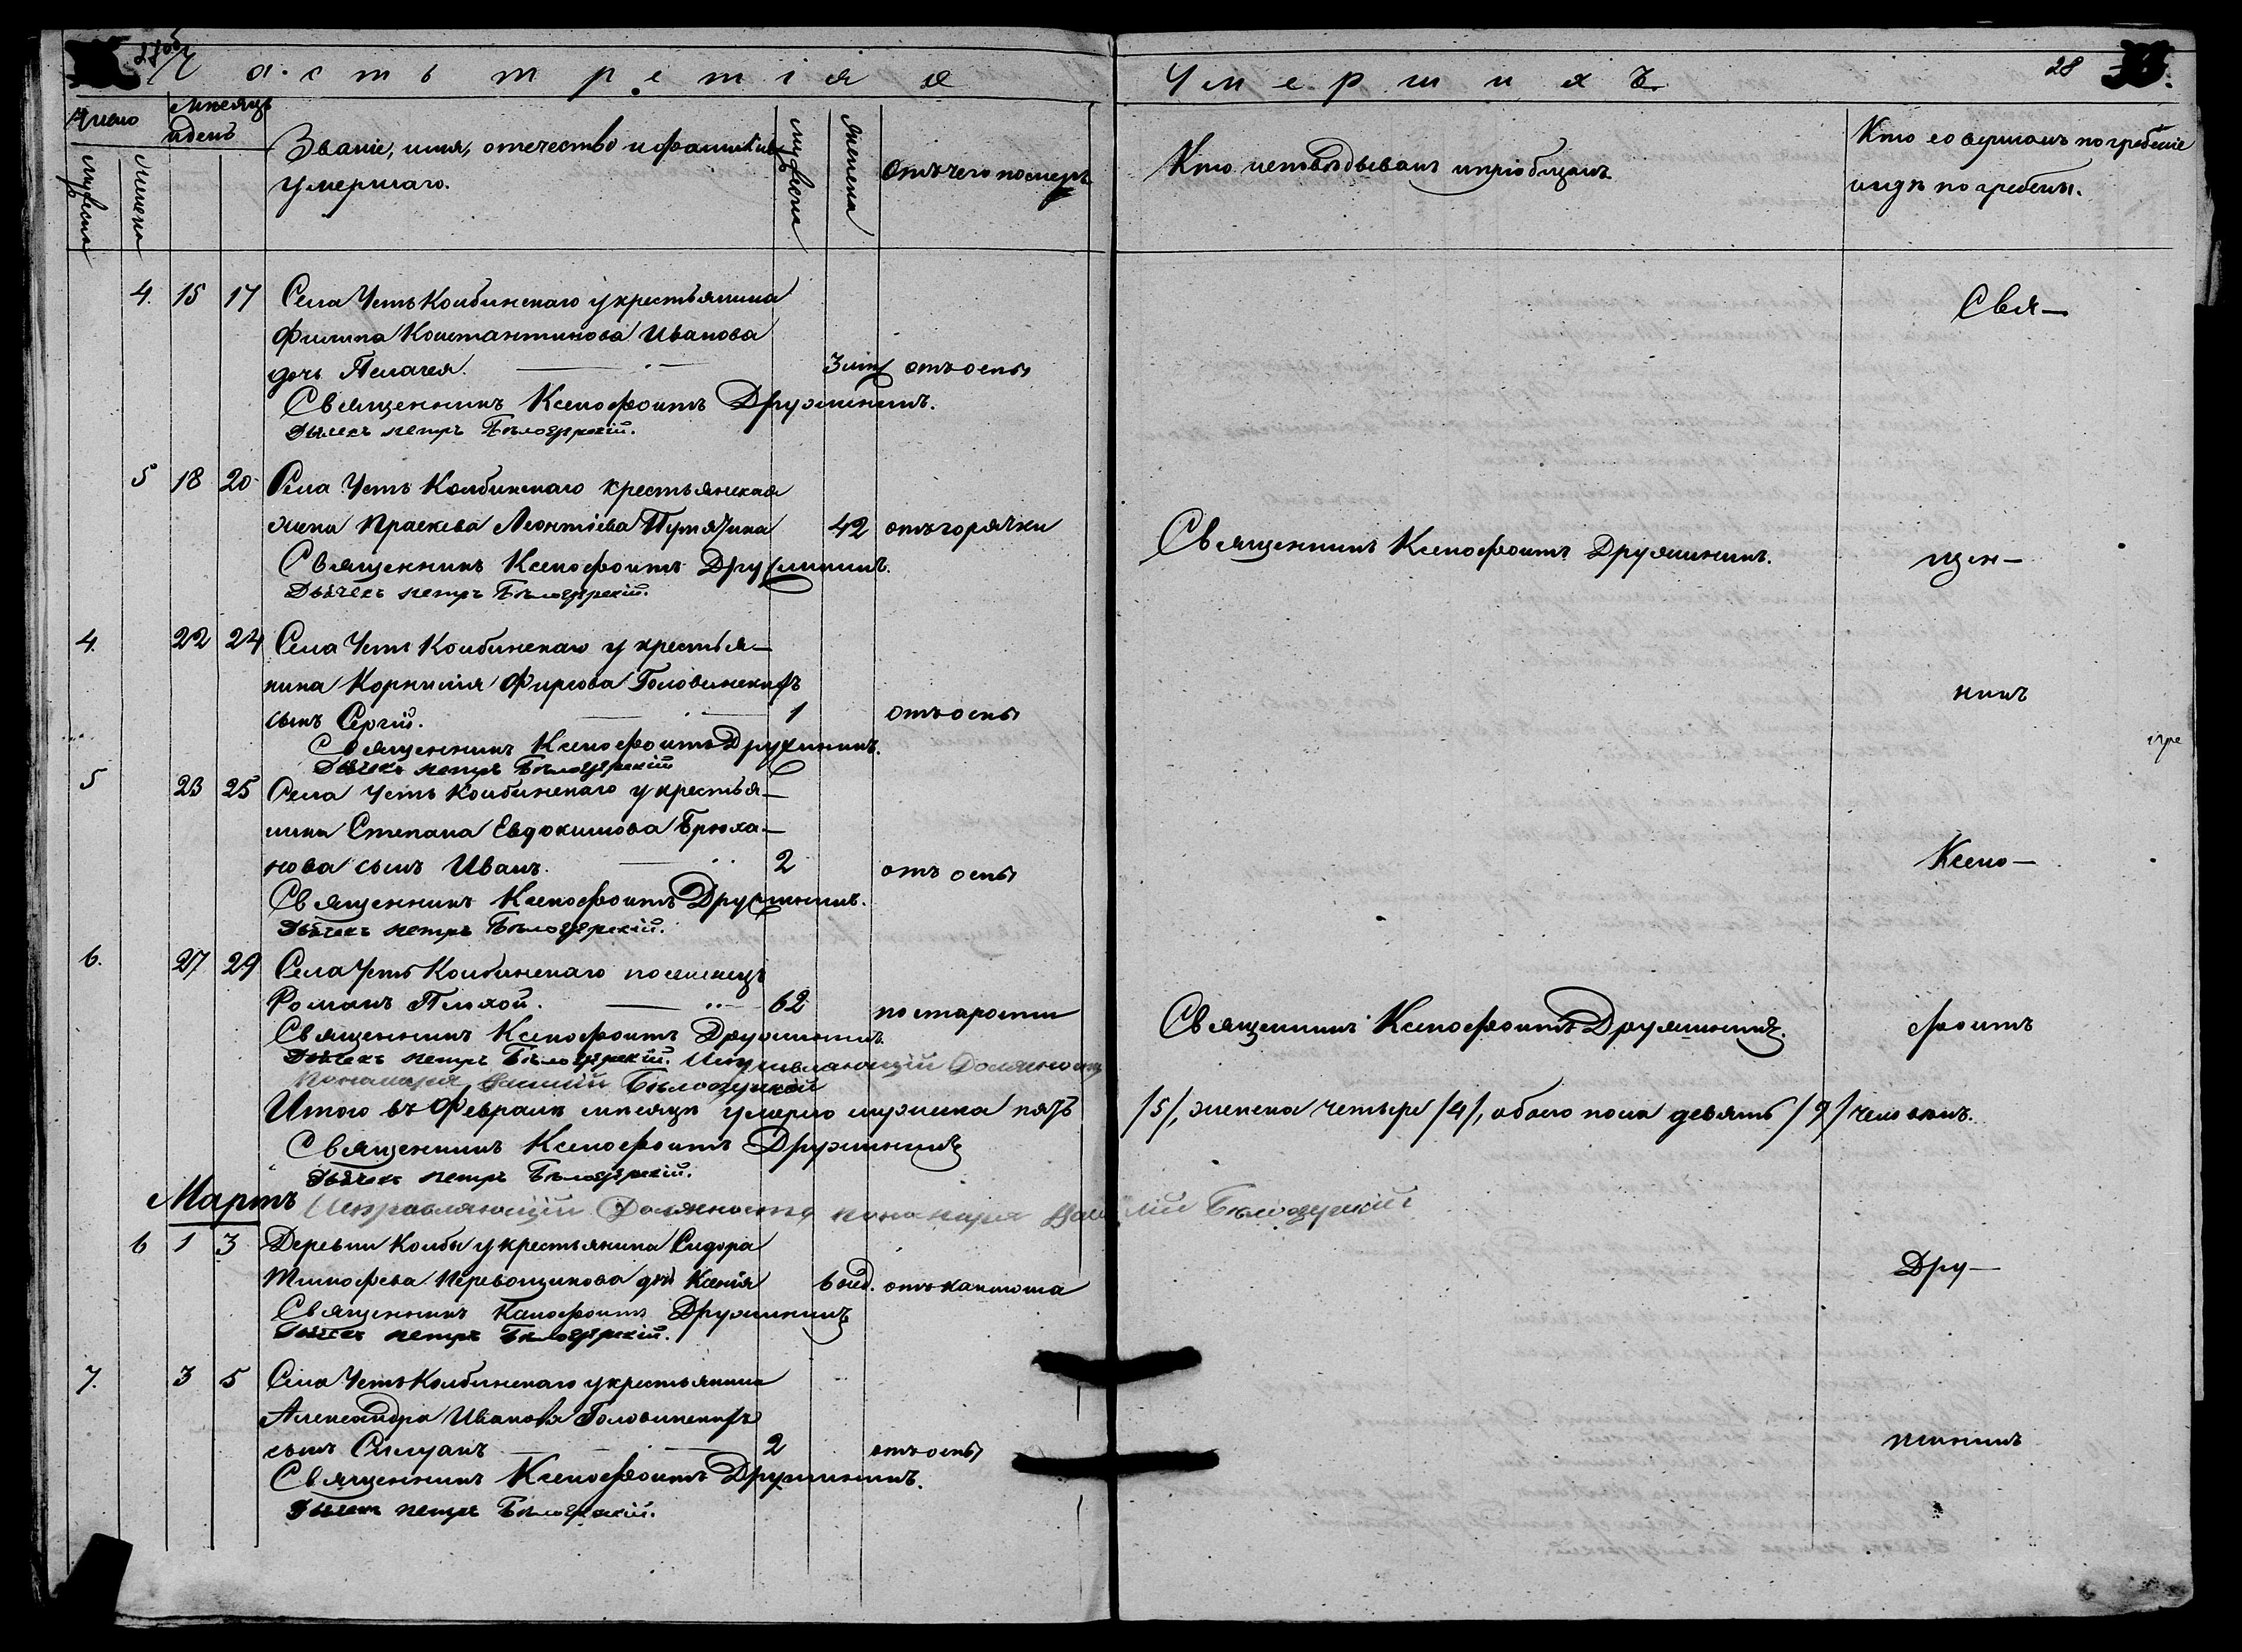 Часть третія о
Умершихъ
28
Число
Мѣсяцъ и день
Мужеска
Женска
Званіе, имя, отечество и фамилія
умершаго.
мужеска
женска
Отъ чего померъ
Кто исповѣдывалъ и пріобщалъ
Кто совершалъ погребеніе
и гдѣ погребены.
4. 15 17 Села Усть Колбинскаго у крестьянина
Филипа Константинова Иванова
дочь Пелагея. 3 лѣтъ отъ оспы
Священникъ Ксенофонтъ Дружининъ.
Дьячекъ петръ Бѣлозерскій.
Свя-
5 18 20 Села Усть Колбинскаго крестьянская
жена Праскева Леонтіева Путятина 42 отъ горячки
Священникъ Ксенофонтъ Дружининъ.
Дьячекъ петръ Бѣлозерскій.
Священникъ Ксенофонтъ Дружининъ.
щен-
4. 22 24 Села Усть Колбинскаго у крестья-
нина Корнилія Фирсова Головинскихъ
сынъ Сергій. 1 отъ оспы
Священникъ Ксенофонтъ Дружининъ.
Дьячекъ петръ Бѣлозерскій
никъ
5 23 25 Села Усть Колбинскаго у крестья-
нина Степана Евдокимова Брюха-
нова сынъ Иванъ. 2 отъ оспы
Священникъ Ксенофонтъ Дружининъ.
Дьячекъ петръ Бѣлозерскій.
Ксено-
6. 27 29 Села Усть Колбинскаго поселенецъ
Романъ Плихой. 62 по старости
Священникъ Ксенофонтъ Дружининъ
Дьячекъ петръ Бѣлозерскій. Исправляющій Должность
Пономаря Василій Бѣлозерскій
Священникъ Ксенофонтъ Дружининъ.
фонтъ
Итого въ Февралѣ мѣсяцѣ умерло мужеска пять /5/, женска четыре /4/, обоего пола девять /9/ человѣкъ.
Священникъ Ксенофонтъ Дружининъ
Дьячекъ петръ Бѣлозерскій.
Мартъ Исправляющій Должность пономаря Василій Бѣлозерскій
6 1 3 Деревни Колбы у крестьянина Сидора
Тимофева Перевощикова дочь Ксенія 6 нед. отъ коклюша
Священникъ Ксенофонтъ Дружининъ
Дьячекъ петръ Бѣлозерскій.
Дру-
7. 3 5 Села Усть Колбинскаго у крестьянина
Александра Иванова Головинскихъ
сынъ Силуанъ 2 отъ оспы
Священникъ Ксенофонтъ Дружининъ.
Дьячекъ петръ Бѣлозерскій.
жининъ